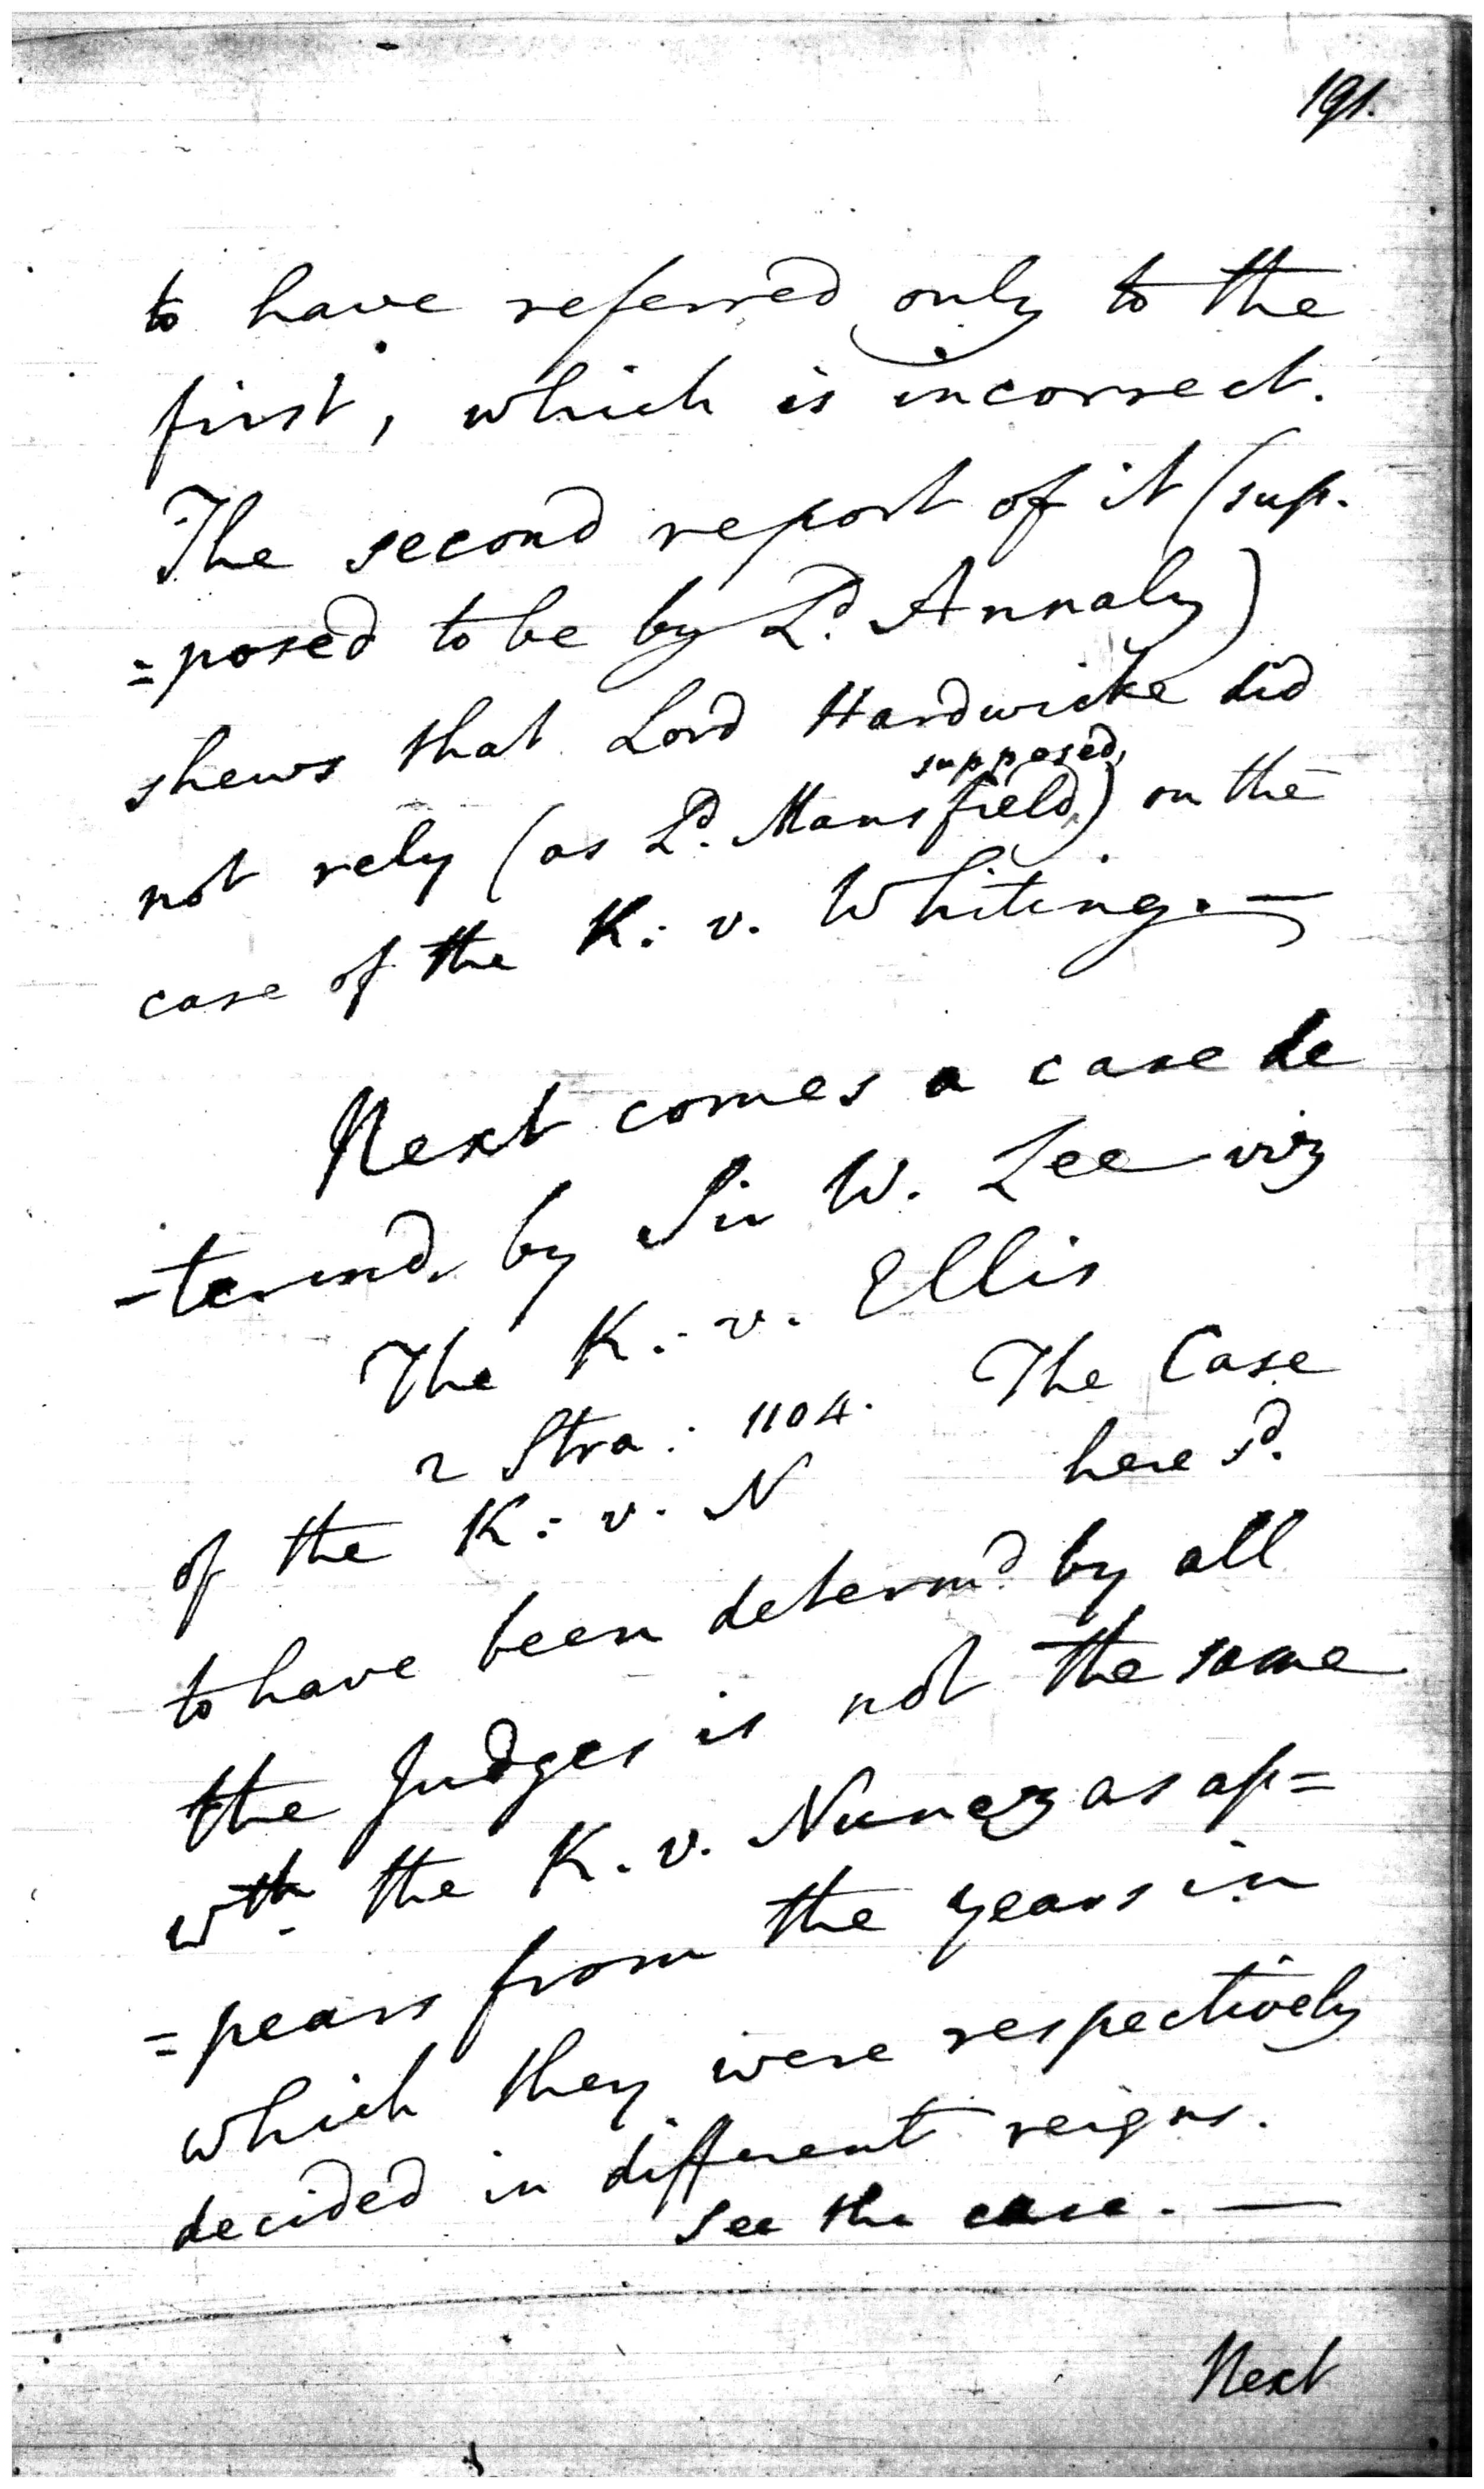 191.
to have referred only to the
first, which is incorrect.
The second report of it (sup-
=posed to be by Ld. Annaly)
shews that Lord Hardwicke did
supposed
not rely (as Ld. Mansfield) on the
case of the K: v. Whiting. —
Next comes a case de
-termd. by Sir W. Lee viz
The K: v. Ellis
2 Stra: 1104. The Case
of the K: v. N here sd.
to have been determd. by all
the Judges is not the same
wth. the K. v. Nunez as ap=
=pears from the years in
which they were respectively
decided in different reigns.
See the case. —
Next